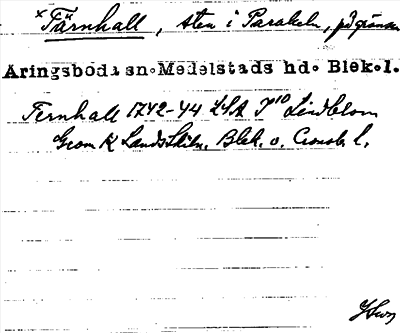 × Färnhall, sten i Parakeln, på gränsen
Åringsboda sn. Medelstads hd. Blek.l.
Fernhall 1742-44 LSA Lindblom
Geom K Landsskiln. Blek. o. Cronob. l.